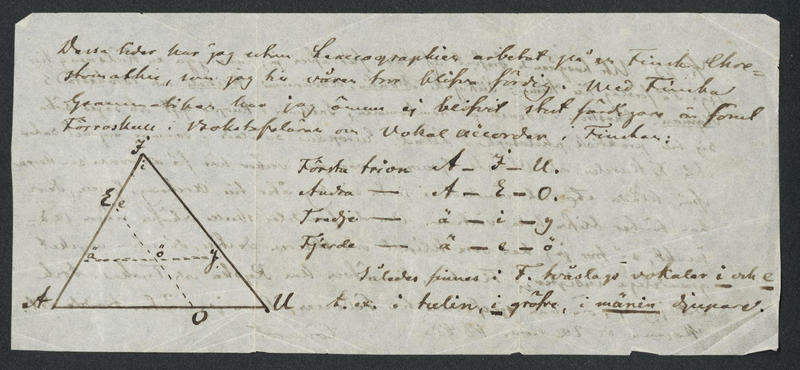 Dessa tider har jag utom Lexicographien arbetat på en Finsk Chre=
stomathie, som jag tror blifva färdig. Med Finska
Grammatiken har jag ännu ej blifvit slut
i Bokstafsläran om Vokal accorder i Finskan:
J
i
E e
ä ö y
A O U
Första trion A – J – U.
Andra — A – E – O.
Tredje — ä – i – y
Fjerde — ä – e – ö
Således finnes i F. tvåslags vokaler i och e
t. ex. i tulin, i gröfre, i mänin djupare.